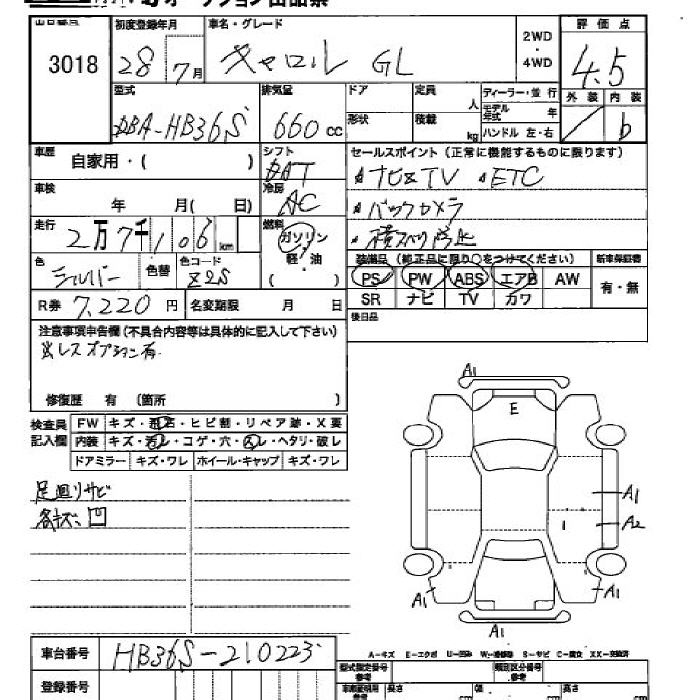 オークション出品票
出品番号 初度登録年月 車名・グレード 2WD・4WD 評価点
3018 28 7月 キャロル GL 4.5
型式 排気量 ドア 定員 人 ディーラー・並行 外装 内装
DBA-HB36S 660cc 形状 積載 kg モデル年式 年 b
ハンドル 左・右
車歴 自家用・( ) シフト セールスポイント(正常に機能するものに限ります)
車検 年 月( 日) 冷房 AC ナビ TV ETC
走行 2万7千106km 燃料 ガソリン・軽・油 ( ) バックカメラ
横スベリ防止
色 シルバー 色替 色コード Z2S 装備品(純正品に限り○をつけてください) 新車保証書
PS PW ABS エアB AW 有・無
R券 7,220円 名変期限 月 日 SR ナビ TV カワ
注意事項申告欄(不具合内容等は具体的に記入して下さい) 後日品
修復歴 有 (箇所 )
検査員記入欄 FW キズ・飛石・ヒビ割・リペア跡・X要
内装 キズ・汚レ・コゲ・穴・スレ・ヘタリ・破レ
ドアミラー キズ・ワレ ホイール・キャップ キズ・ワレ
足廻りサビ
各キズ、凹
A1
E
A1
A2
1
A1
A1
A1
A-キズ E-エクボ U-凹み W-補修跡 S-サビ C-腐食 XX-交換済
車台番号 HB36S-210223
登録番号
型式指定番号 参考 類別区分番号 参考
長さ cm 幅 cm 高さ cm